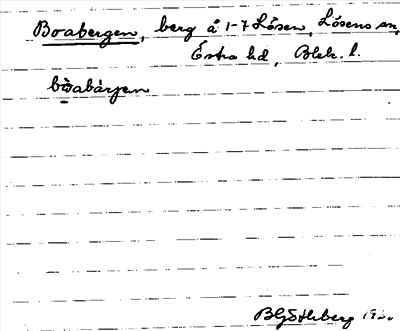 Boabergen, berg å 1-7 Lösen, Lösens sn,
Östra hd, Blek. l.
bòabárjen
B Götlberg